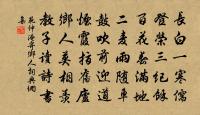 長白一寒儒
登榮三紀餘
百花春滿地
二麥雨隨車
鼓吹前迎道
煙霞指舊廬
鄉人莫相羨
教子讀詩書
范仲淹寄鄉人詞典網
集